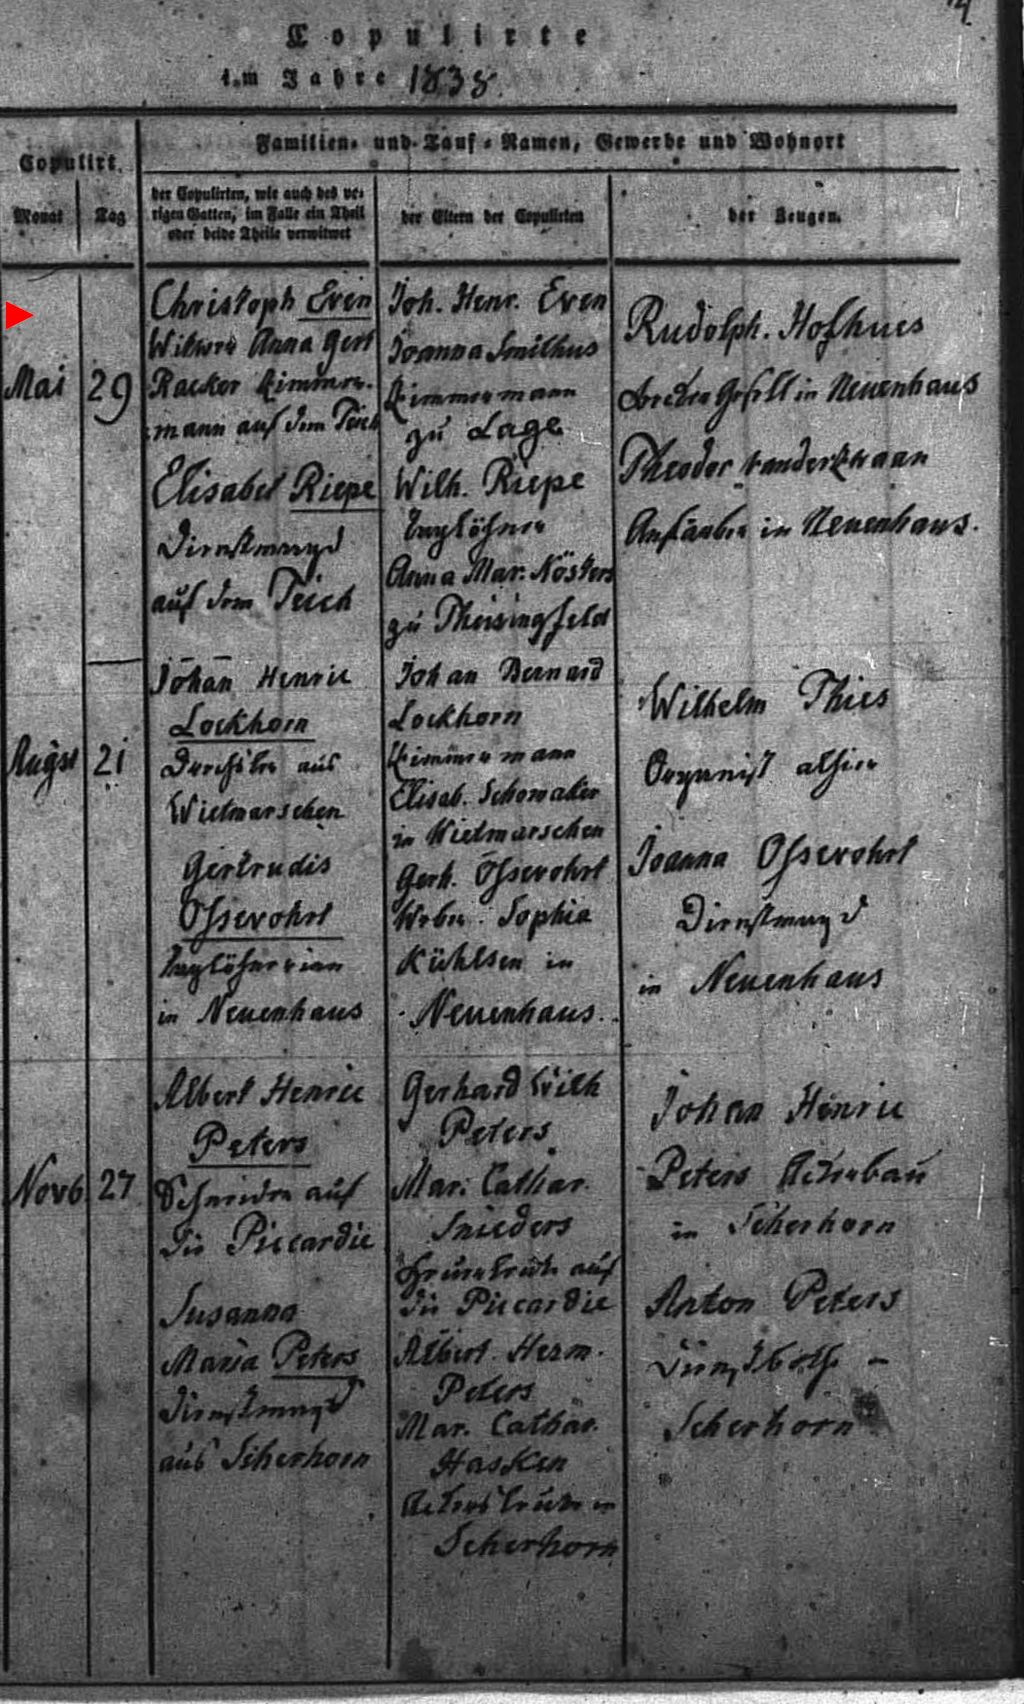 Copulirte
im Jahre 1838.
Copulirt.
Monat
Tag
Familien- und Tauf-Namen, Gewerbe und Wohnort
der Copulirten, wie auch des vo-
rigen Gatten, im Falle ein Theil
oder beide Theile verwitwet
der Eltern der Copulirten
der Zeugen.
Mai 29
Christoph Even
Witwer Anna Gert
Racker Zimmer-
mann auf dem Teich
Elisabet Riepe
Dienstmagd
auf dem Teich
Joh. Henr. Even
Joanna Smithus
Zimmermann
zu Lage
Wilh. Riepe
Taglöhner
Anna Mar. Nösters
zu Theisingfeld
Rudolph. Hofhues
Gesell in Neuenhaus
Theodor vanderZwaan
in Neuenhaus.
Augst 21
Johan Henric
Lockhorn
Drechsler aus
Wietmarschen
Gertrudis
Ossevohrt
Taglöhnerinn
in Neuenhaus
Johan Bernard
Lockhorn
Zimmermann
Elisab. Schomaker
in Wietmarschen
Gerh. Ossevohrt
Weber. Sophia
Kühlsen in
Neuenhaus.
Wilhelm Thies
Organist alhier
Joanna Ossevohrt
Dienstmagd
in Neuenhaus
Novb 27
Albert Henric
Peters
Schneider auf
die Piccardie
Susanna
Maria Peters
Dienstmagd
aus Scherhorn
Gerhard Wilh
Peters
Mar. Cathar.
Snieders
auf
die Piccardie
Albert Herm.
Peters
Mar. Cathar.
Hasken
Ackersleute in
Scherhorn
Johan Henric
Peters Ackerbau
in Scherhorn
Anton Peters
Dienstbothe -
Scherhorn